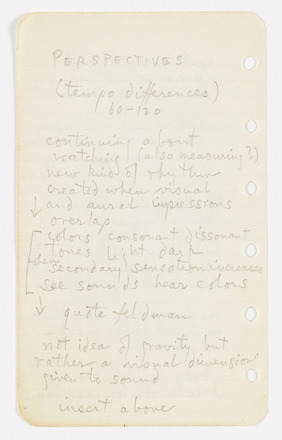 PERSPECTIVES
(tempo differences)
60-120
continuing about
watching (also measuring?)
new kind of rhythm
created when visual
and aural impressions
overlap
colors consonant dissonant
tones light dark
when
secondary sensation increases
see sounds hear colors
quote feldman
not idea of gravity but
rather a visual dimension
given to sound
insert above